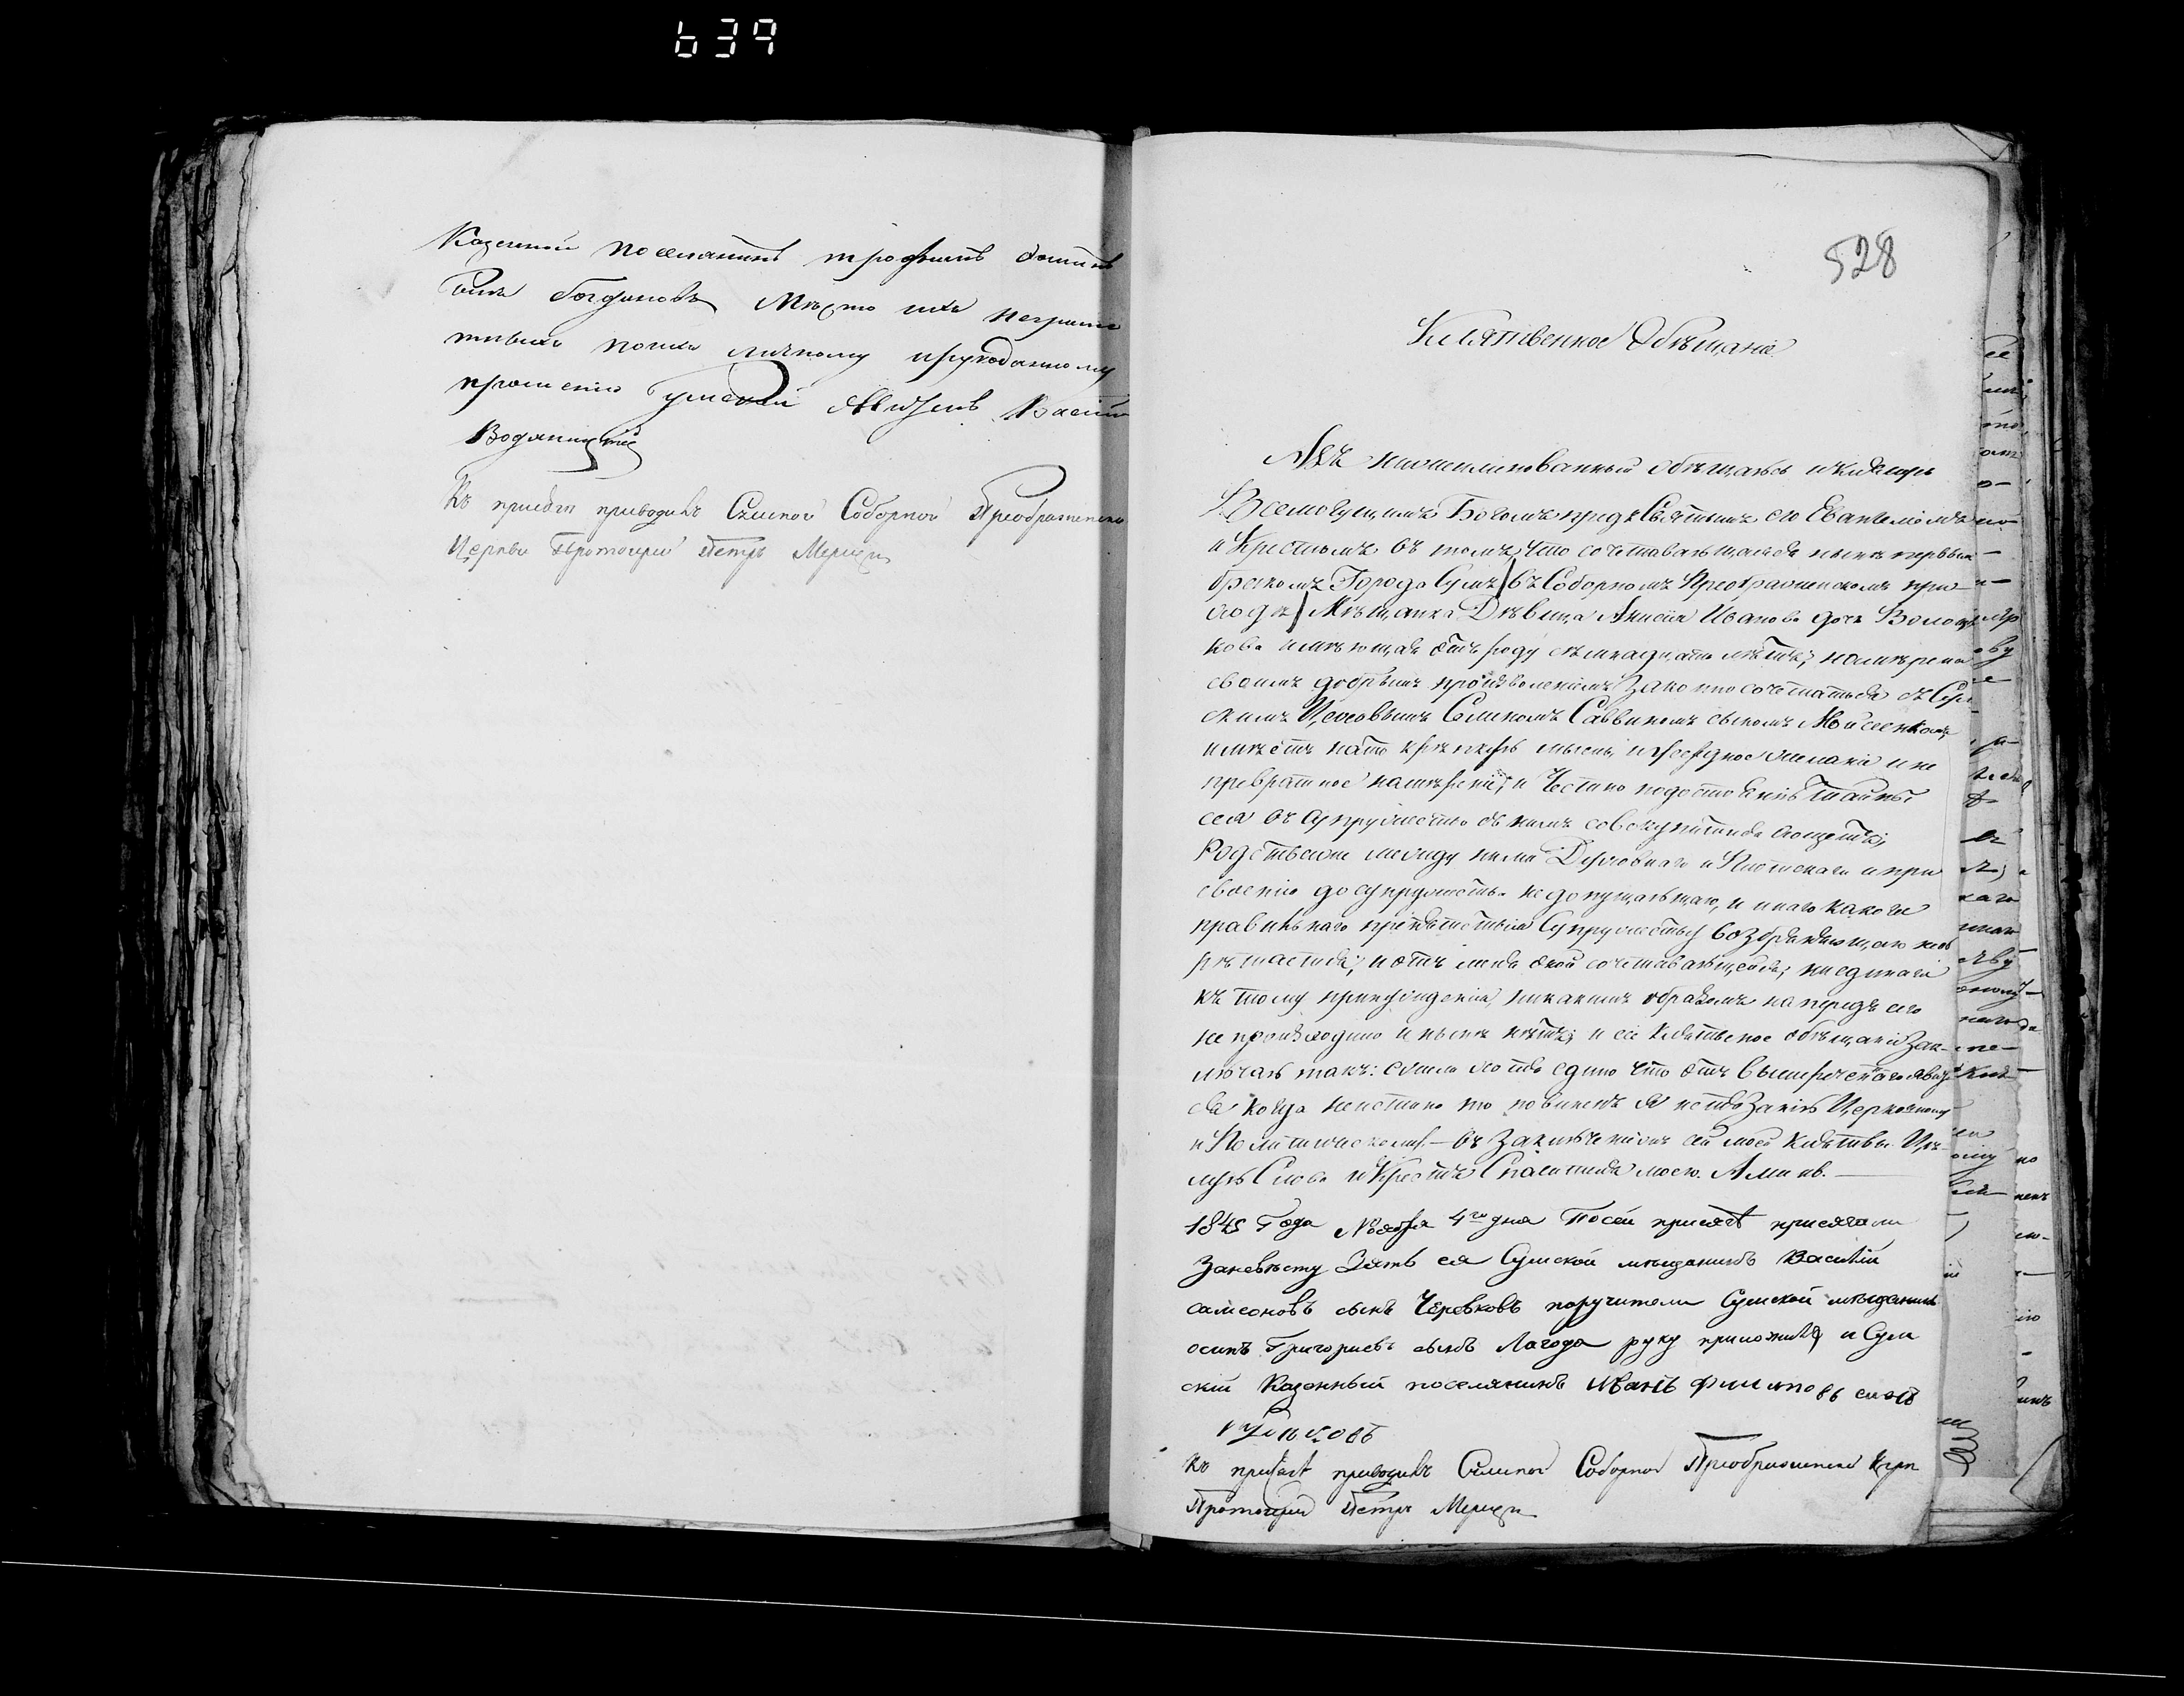 639
Казенной поселянинъ трофимъ
Богдановъ Мѣсто ихъ неграмо
тныхъ поихъ личному ирукоданному
прошенію Сумской Василій
Водяницкій
Къ присягѣ приводилъ Сумской Соборной Преображенской
Церкви Протоіерей Петръ
528
Клятвенное Обѣщаніе
Азъ нижепоименованный обѣщаюсь и клянусь
Всемогущимъ Богомъ предъ Святымъ его Евангеліемъ
и Крестомъ въ томъ, что сочетавающаяся нынѣ первымъ
бракомъ Города Сумъ въ Соборномъ Преображенскомъ при-
ходѣ Мѣщанка Дѣвица Анисія Иванова дочь
кова имѣющая отъ роду семнадцать лѣтъ; намѣрена
своимъ добрымъ произволеніемъ Законно сочетаться съ Сум
скимъ Цеховымъ Саввинымъ сыномъ Мойсеенкомъ,
имѣетъ на то крѣпкую мысль, и усердное желаніе и не
превратное намѣреніе, и Честно по достоянію Тайны
сея въ супружество съ нимъ совокупиться хощетъ;
Родства же между ними Духовнаго и Плотскаго и при
своенію до супружества не допущающаго, и инаго какого
правильнаго препятствія Супружеству возбраняющаго не об
рѣтается; и отъ меня оной сочетавающейся, ни единаго
къ тому принужденія, никакимъ образомъ напредъ сего
не происходило и нынѣ нѣтъ; и сіе клятвенное обѣщаніе Зак-
лючаю такъ: ежели хотя едино что отъ вышереченнаго явит
ся когда неистинно то повиненъ я истязанію Церковному
и Политическому. — въ Заключеніе сей моей клятвы Цѣ-
лую Слова и Крестъ Спасителя моего. Аминь. —
1845 Года Ноября 4го дня Посей присягѣ присягали
Заневѣсту Зять ея Сумской мѣщанинъ Василій
самсоновъ сынъ Черевковъ поручители Сумской мѣщанинъ
осипъ Григорьевъ сынъ Лагода руку приложилъ и Сум
скій Казенный поселянинъ Иванъ Филиповъ сынъ
Къ присягѣ приводилъ Сумской Соборной Преображенской Церк
Протоіерей Петръ